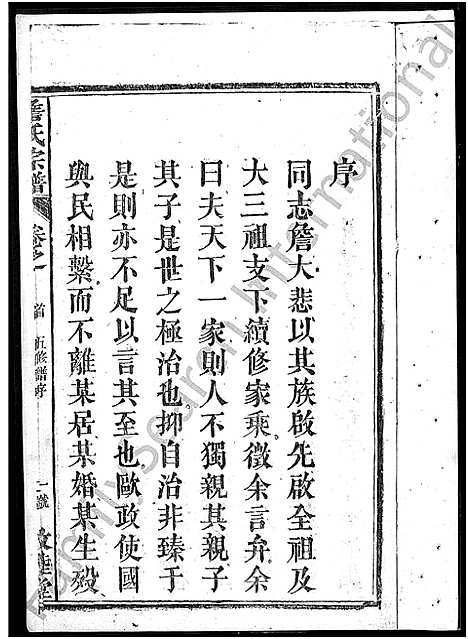 序
同志詹大悲以其族啟先啟全祖及
大三祖支下續修家乘徵余言弁余
曰夫天下一家則人不獨親其親子
其子是世之極治也抑自治非臻于
是則亦不足以言其至也歐政使國
與民相繫而不離某居某婚某生殁
詹氏宗譜 卷之一 首 五修譜序 一號 敦睦堂
FamilySearch International